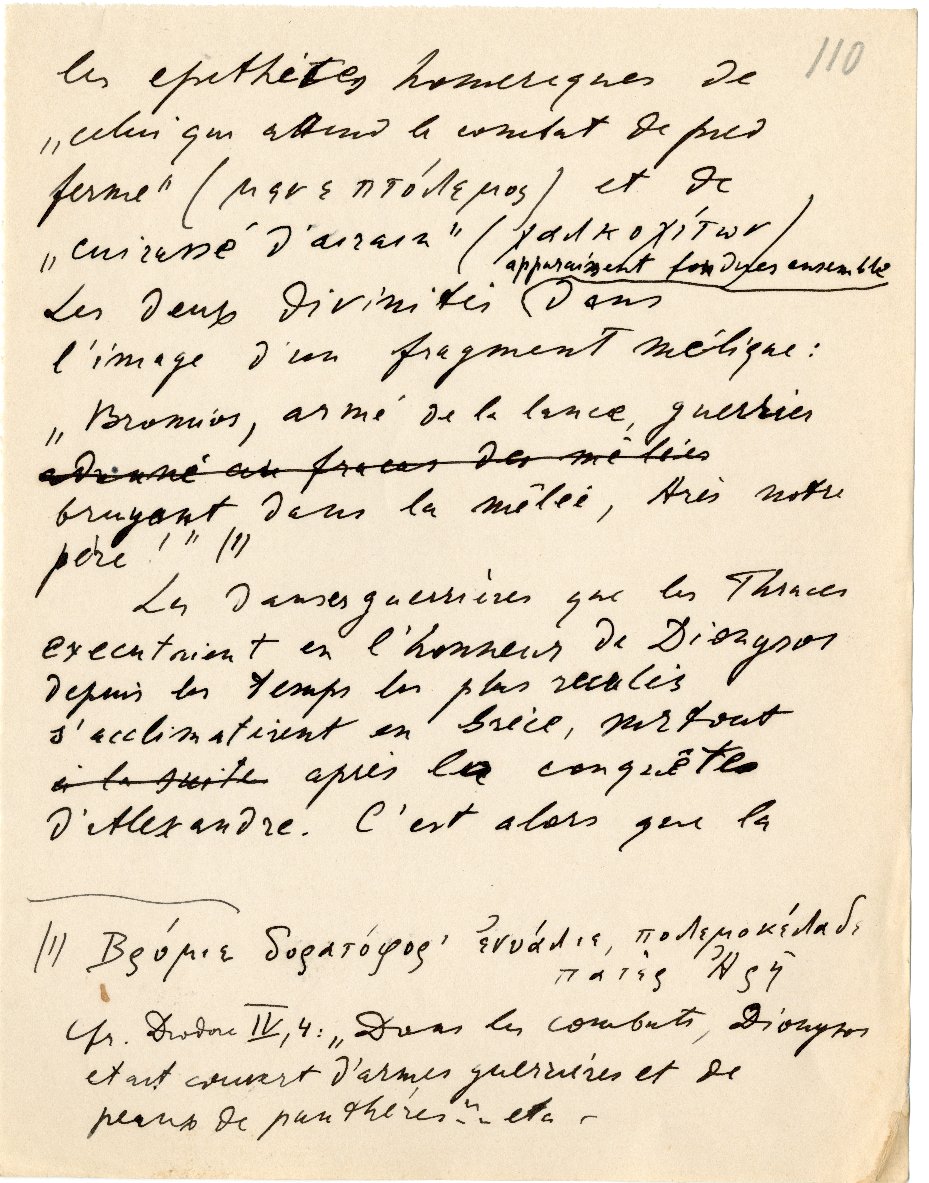 110
les epithètes homeriques de
„celui qui attend le combat de pied
ferme" (μενεπτόλεμος) et de
„cuirassé d'airain" (χαλκοχίτων)
apparaissent fondues ensemble
Les deux divinités dans
l'image d'un fragment mélique:
„Bromios, armé de la lance, guerrier
adonné au fracas des mêlées
bruyant dans la mêlée, Arès notre
père!" (1)
Les danses guerrières que les Thraces
executaient en l'honneur de Dionysos
depuis les temps les plus reculés
s'acclimatèrent en Grèce, surtout
à la suite après les conquêtes
d'Alexandre. C'est alors que la
(1) Βρόμιε δορατόφορ' ἐνυάλιε, πολεμοκέλαδε
πατὲρ Ἄρη
cfr. Diodore IV, 4: „Dans les combats, Dionysos
etait couvert d'armes guerrières et de
peaux de panthères" etc